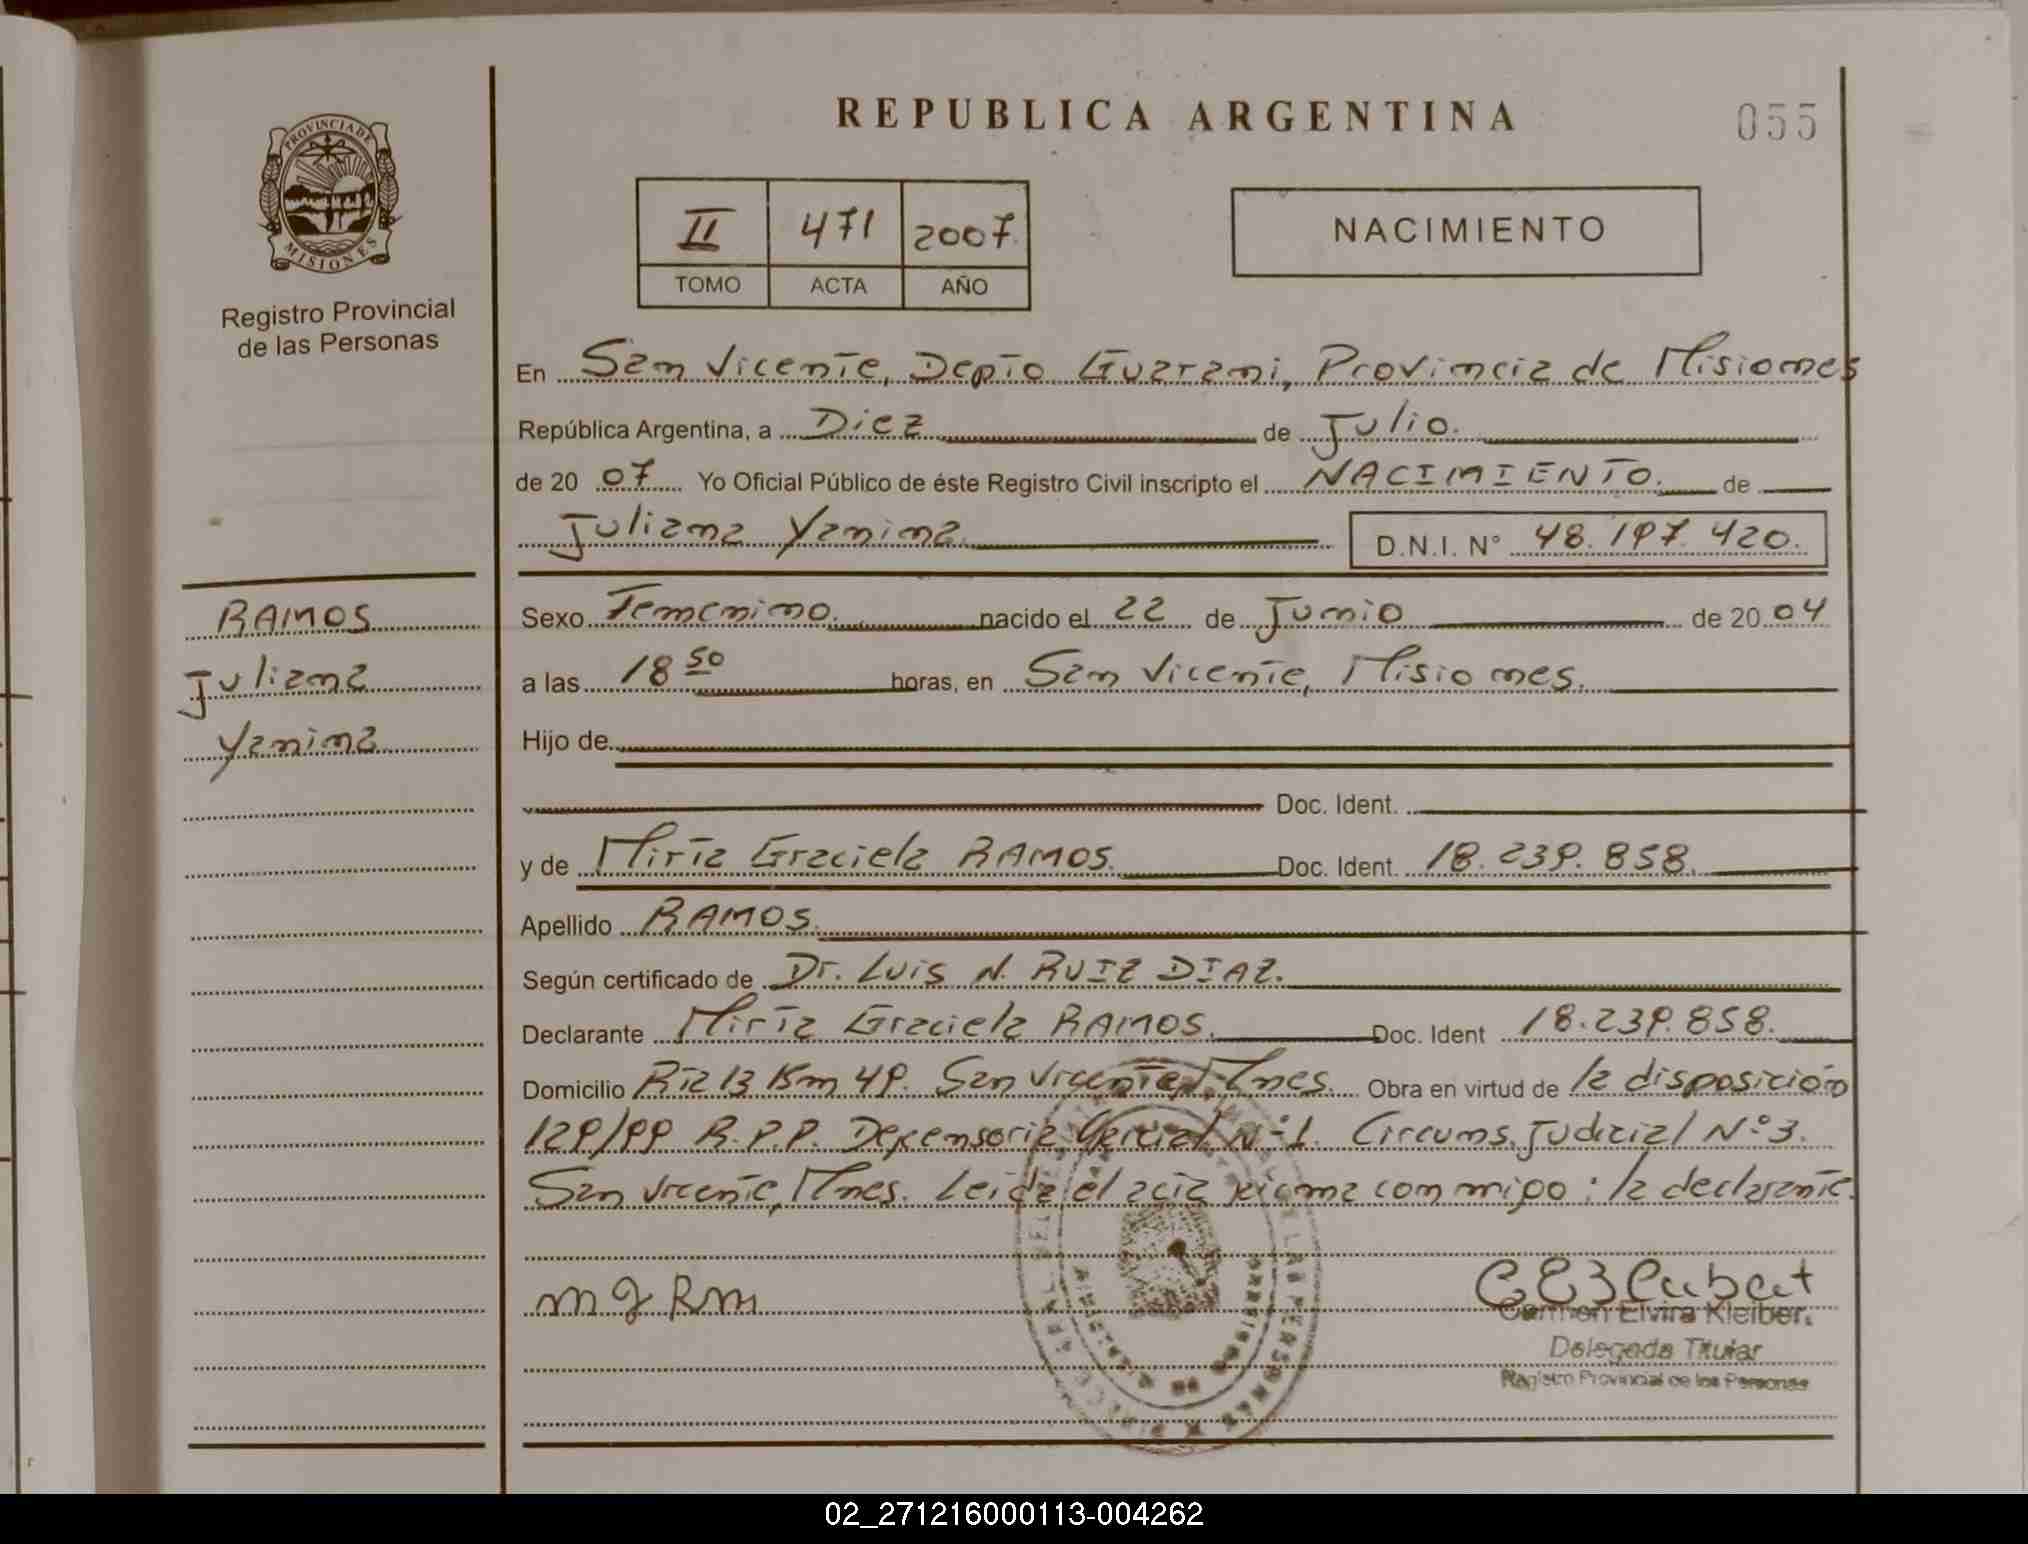 PROVINCIA DE
MISIONES
Registro Provincial
de las Personas
RAMOS
Juliana
Yanina
REPUBLICA ARGENTINA
055
II 471 2007
TOMO ACTA AÑO
NACIMIENTO
En San Vicente, Depto Guarani, Provincia de Misiones
República Argentina, a Diez de Julio.
de 20 07 Yo Oficial Público de éste Registro Civil inscripto el NACIMIENTO. de
Juliana Yanina. D.N.I. N° 48.197.420.
Sexo Femenino. nacido el 22 de Junio de 20 04
a las 18 50 horas, en San Vicente, Misiones.
Hijo de
Doc. Ident.
y de Mirta Graciela RAMOS. Doc. Ident. 18.239.858.
Apellido RAMOS.
Según certificado de Dr. Luis N. RUIZ DIAZ.
Declarante Mirta Graciela RAMOS. Doc. Ident 18.239.858.
Domicilio Rta 13 Km 49. San Vicente, Mnes. Obra en virtud de la disposición
129/99 R.P.P. Defensoria Oficial N°1. Circuns. Judicial N°3.
San Vicente, Mnes. Leida el acta firma conmigo: la declarante.
m g Rm
Carmen Elvira Kleiber.
Delegada Titular
Registro Provincial de las Personas
02_271216000113-004262